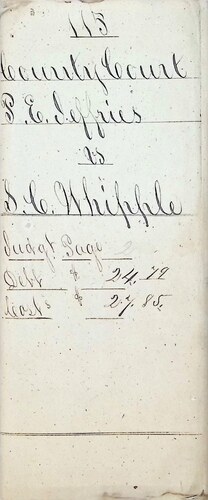 113
County Court
P. E. Jeffries
vs
S. C. Whipple
Judgt Page
Debt $ 24.79
Costs $ 27.85.